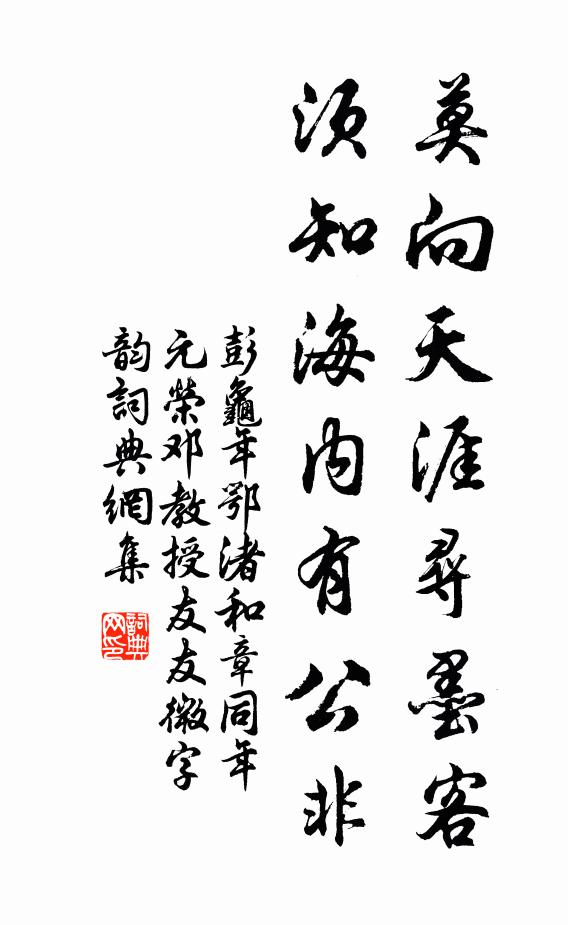 莫向天涯尋墨客
須知海内有公非
彭龜年鄂渚和章同年
元榮邓教授友友微字
韵詞典網集
詞典网印